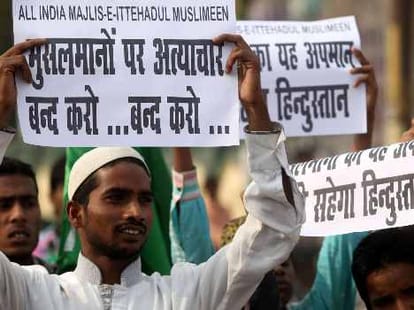 ALL INDIA MAJLIS-E-ITTEHADUL MUSLIMEEN
मुसलमानों पर अत्याचार
बन्द करो ...बन्द करो ...
MAJLIS-E-ITTEHADUL MUSLIMEEN
का यह अपमान
हिन्दुस्तान
का यह
सहेगा हिन्दुस्तान